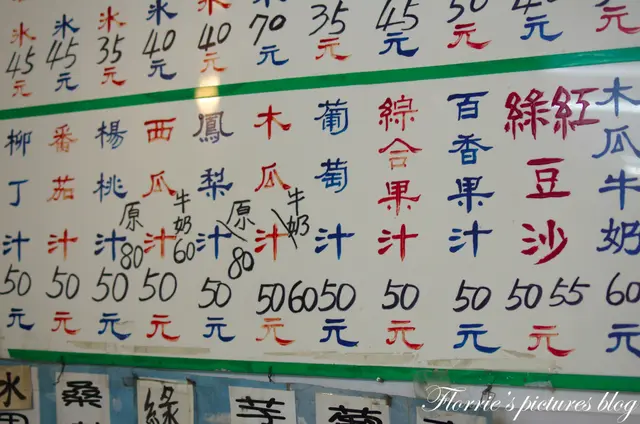 冰 45元
冰 45元
冰 35元
冰 40元
冰 40元
70元
35元
45元
50元
元
元
柳丁汁 50元
番茄汁 50元
楊桃汁 50元
原 80
西瓜汁 50元
牛奶 60
鳳梨汁 50元
原 80
木瓜汁 50 60元
牛奶
葡萄汁 50元
綜合果汁 50元
百香果汁 50元
綠紅豆沙 50 55元
木瓜牛奶 60元
冰
桑
綠
芋
Florrie's pictures blog